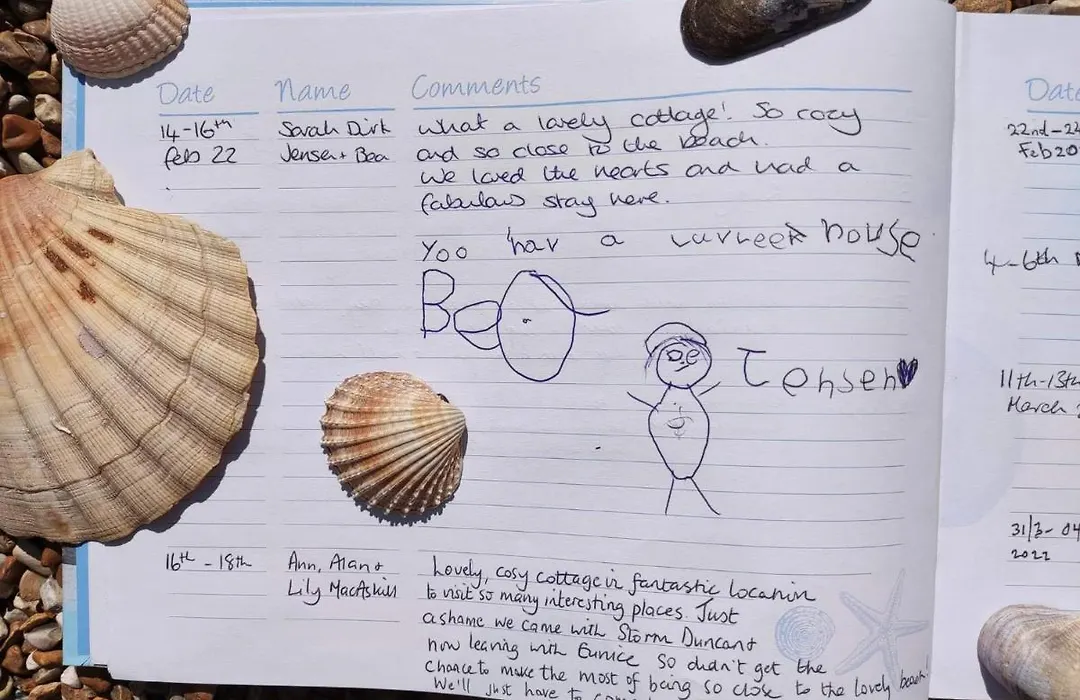 Date Name Comments
14-16th Sarah Dirk What a lovely cottage! So cozy
feb 22 Jensen + Bea and so close to the beach.
We loved the hearts and had a
fabulous stay here.
Yoo hav a house
Bea
Jensen
16th - 18th Ann, Alan + Lovely, cosy cottage in fantastic location
Lily MacAskill to visit so many interesting places. Just
a shame we came with Storm Duncan +
now leaving with Eunice so didn't get the
chance to make the most of being so close to the lovely beach!
We'll just have to
Date
22nd-24
Feb 20
4-6th
11th-13th
March
31/3-04
2022